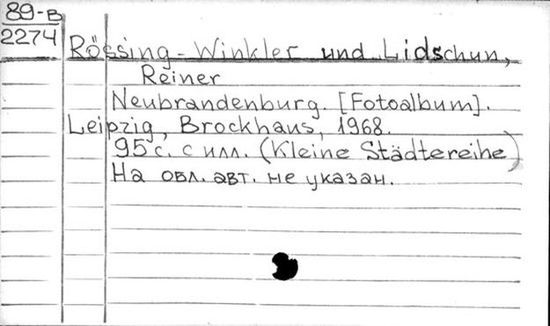 89-в
2274
Rössing-Winkler und Lidschun,
Reiner
Neubrandenburg. [Fotoalbum].
Leipzig, Brockhaus, 1968.
95 с. с илл. (Kleine Städtereihe)
На обл. авт. не указан.